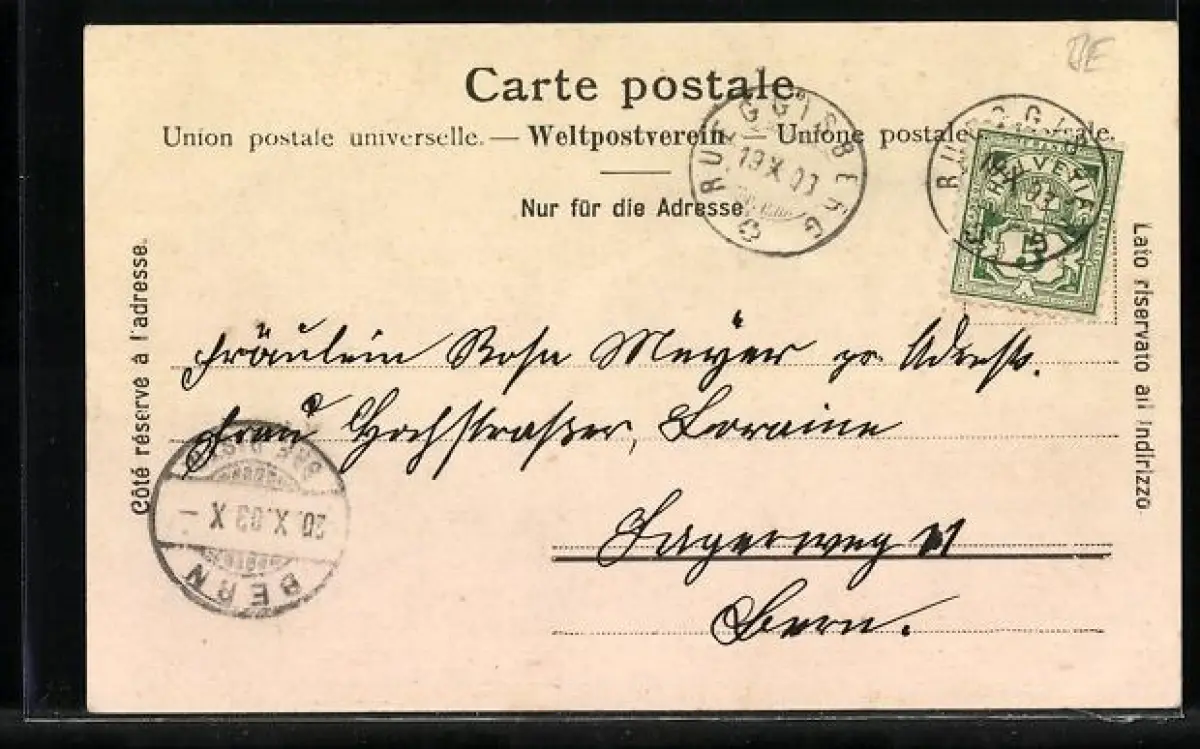 Carte postale.
Union postale universelle. — Weltpostverein. — Unione postale universale.
Nur für die Adresse.
RUEGGISBERG
19 X 03
RUEGGISBERG
19 X 03
HELVETIA
5
Côté réservé à l'adresse.
Lato riservato all'indirizzo
Fräulein Rosa Meyer pr. Adress.
Frau Hochstrasser, Lorraine
Lagerweg 11
Bern.
BERN
20. X. 03 X
BRF. DIST.